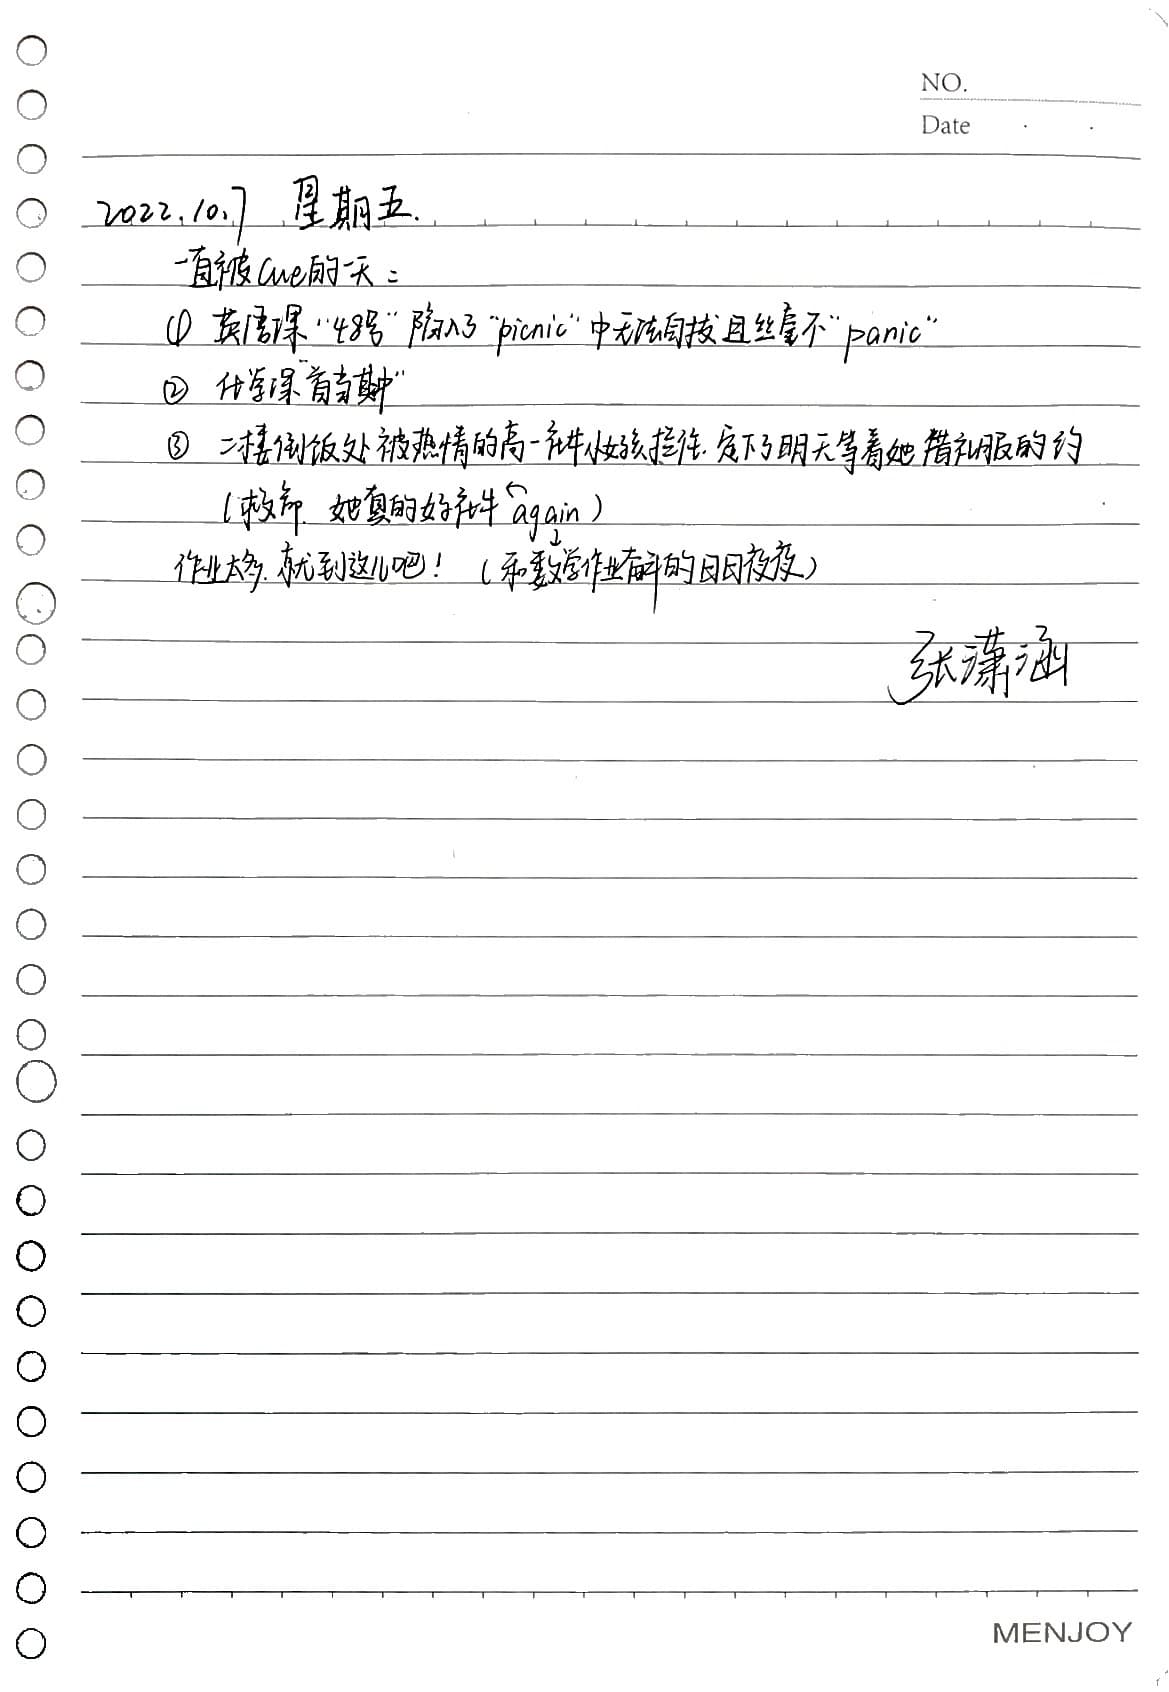 NO.
Date . .
2022.10.7 星期五.
一直被cue的一天：
① 英语课“48号”陷入了“picnic”中无法自拔且丝毫不“panic”
② 化学课“首当其冲”
③ 二楼倒饭处被热情的高一社牛女孩拦住.定下了明天等着她借礼服的约
(救命 她真的好社牛 again)
作业太多.就到这儿吧！(和数学作业奋斗的日日夜夜)
张潇涵
MENJOY